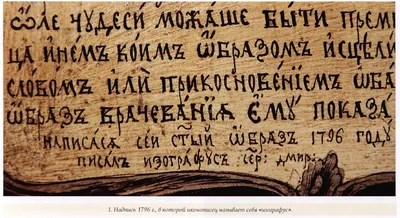 Ѽле чудеси можаше быти преми
ца инемъ коимъ ѿбразомъ исцѣли
словомъ илй прикосновенїемъ ѿба
ѿбразъ врачеванїѧ ему показа
написасѧ сеи стый ѿбразъ 1796 году
писалъ изографусъ сер: дмир:
1. Надпись 1796 г., в которой иконописец называет себя «изографус».